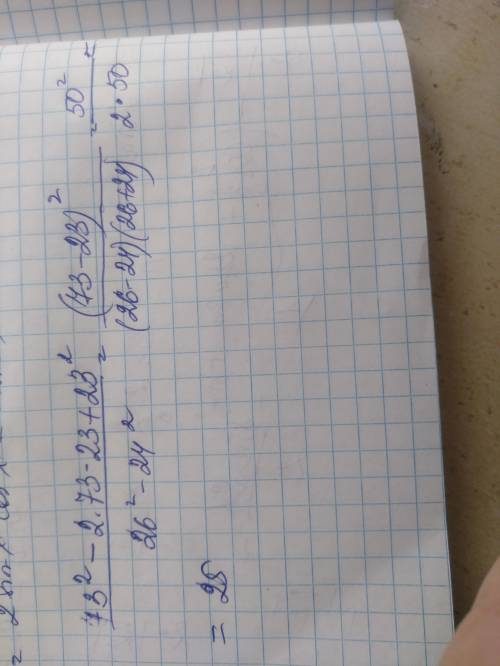 = 2 sin x cos x
73² - 2·73·23 + 23² / 26² - 24² = (73 - 23)² / (26 - 24)(26 + 24) = 50² / 2·50 =
= 25